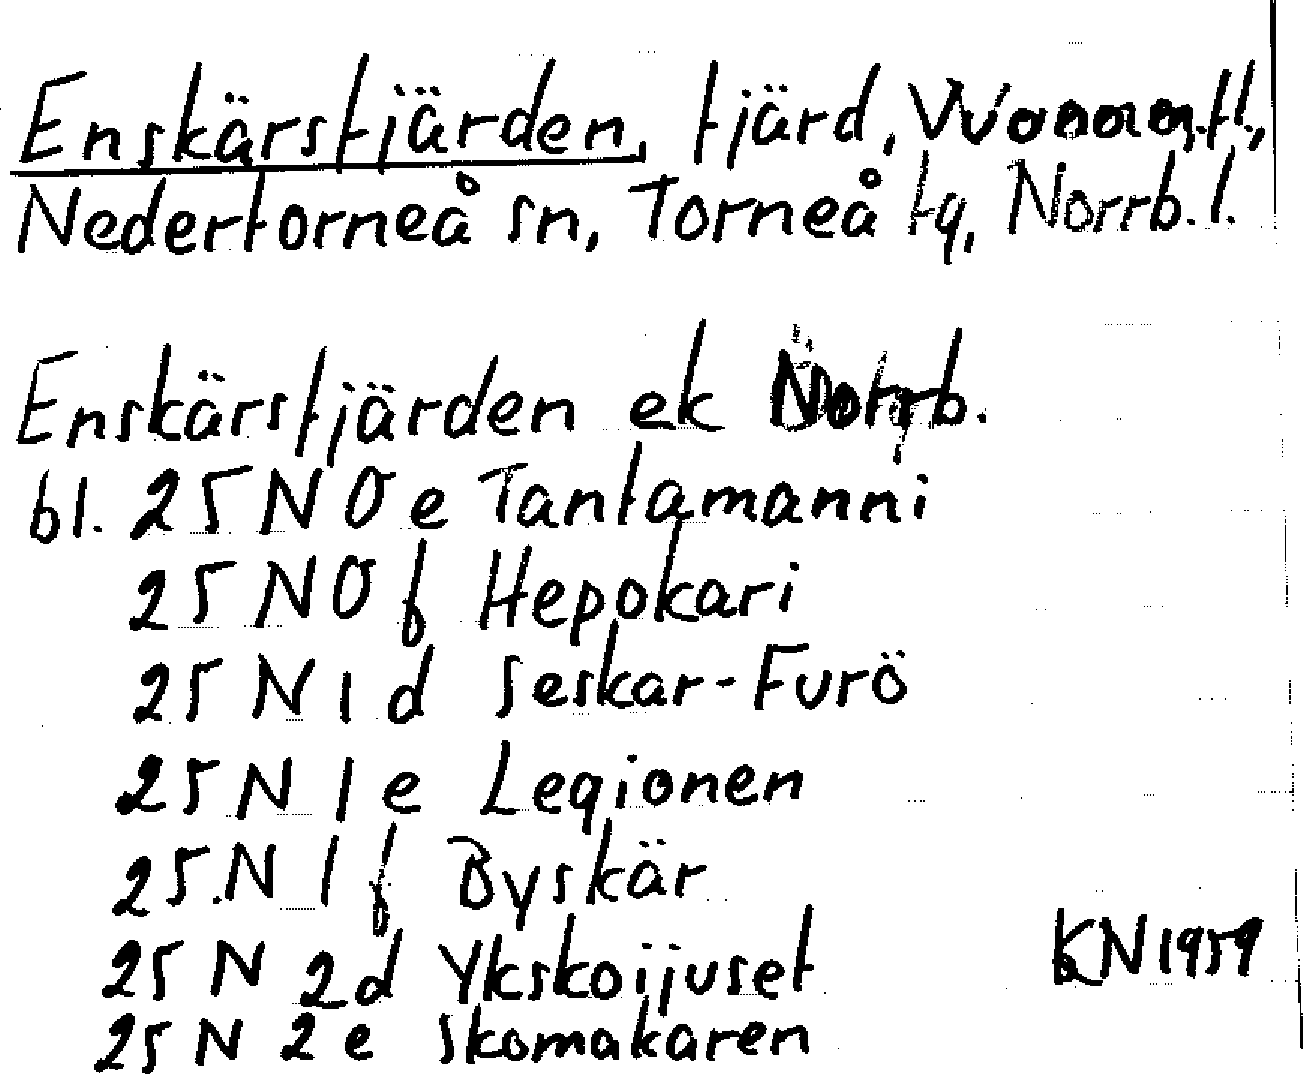 Enskärsfjärden, fjärd,
Nedertorneå sn, Torneå tg, Norrb. l.
Enskärsfjärden ek Norrb.
bl. 25 N 0 e Tantamanni
25 N 0 f Hepokari
25 N 1 d Seskar-Furö
25 N 1 e Legionen
25 N 1 f Byskär
25 N 2 d Ykskoijuset
25 N 2 e Skomakaren
KN 1959